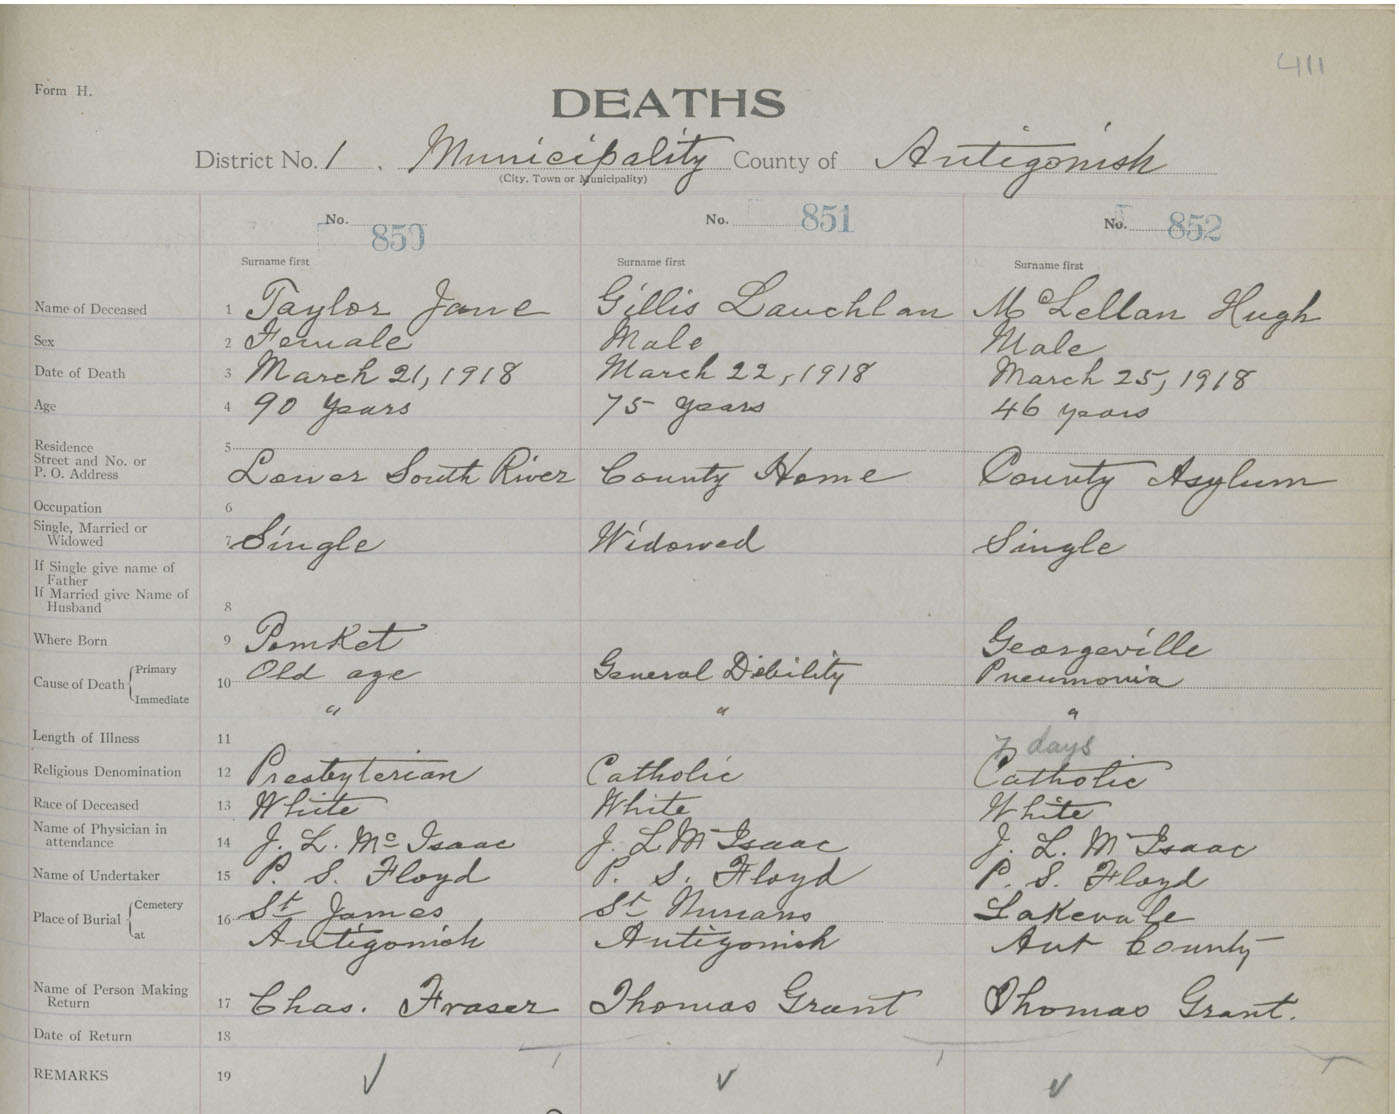 411
Form H.
DEATHS
District No. 1. Municipality County of Antigonish
(City, Town or Municipality)
No. 850 No. 851 No. 852
Surname first Surname first Surname first
Name of Deceased 1 Taylor Jane Gillis Lauchlan McLellan Hugh
Sex 2 Female Male Male
Date of Death 3 March 21, 1918 March 22, 1918 March 25, 1918
Age 4 90 years 75 years 46 years
Residence 5
Street and No. or
P. O. Address Lower South River County Home County Asylum
Occupation 6
Single, Married or
Widowed 7 Single Widowed Single
If Single give name of
Father
If Married give Name of
Husband 8
Where Born 9 Pomket Georgeville
Cause of Death { Primary 10 Old age General Debility Pneumonia
Immediate " " "
Length of Illness 11 7 days
Religious Denomination 12 Presbyterian Catholic Catholic
Race of Deceased 13 White White White
Name of Physician in
attendance 14 J. L. McIsaac J. L McIsaac J. L. McIsaac
Name of Undertaker 15 P. S. Floyd P. S. Floyd P. S. Floyd
Place of Burial { Cemetery 16 St James St Ninians Lakevale
at Antigonish Antigonish Ant County
Name of Person Making
Return 17 Chas. Fraser Thomas Grant Thomas Grant.
Date of Return 18
REMARKS 19 ✓ ✓ ✓